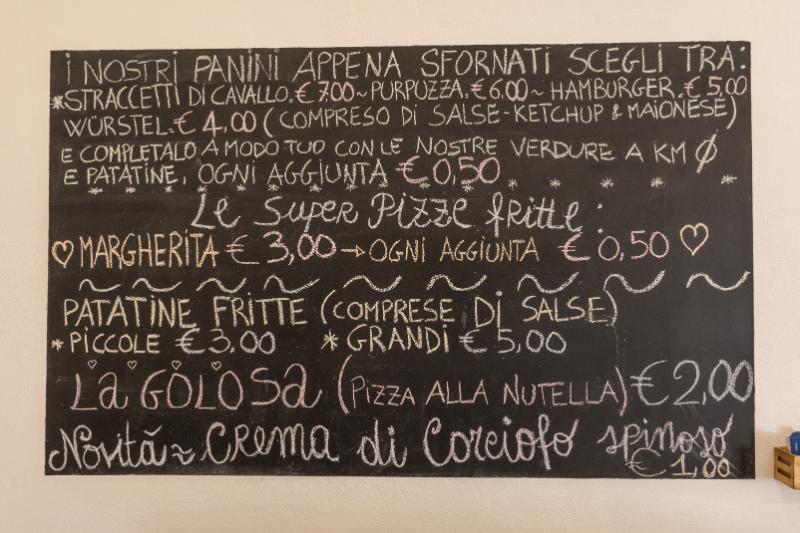 i NOSTRi PANiNi APPENA SFORNATi SCEGLi TRA:
*STRACCETTi Di CAVALLO.€ 7.00~PURPUZZA.€ 6.00~ HAMBURGER.€ 5,00
WÜRSTEL.€ 4,00 (COMPRESO Di SALSE-KETCHUP & MAiONESE)
E COMPLETALO A MODO TUO CON LE NOSTRE VERDURE A KM Ø
E PATATiNE, OGNi AGGiUNTA € 0,50
Le Super Pizze fritte:
♡ MARGHERiTA € 3,00 → OGNi AGGiUNTA € 0,50 ♡
PATATiNE FRiTTE (COMPRESE Di SALSE)
* PiCCOLE € 3,00 * GRANDi € 5,00
La GOLOSa (PiZZA ALLA NUTELLA) € 2,00
Novità ~ CREMA di Carciofo spinoso
€ 1,00